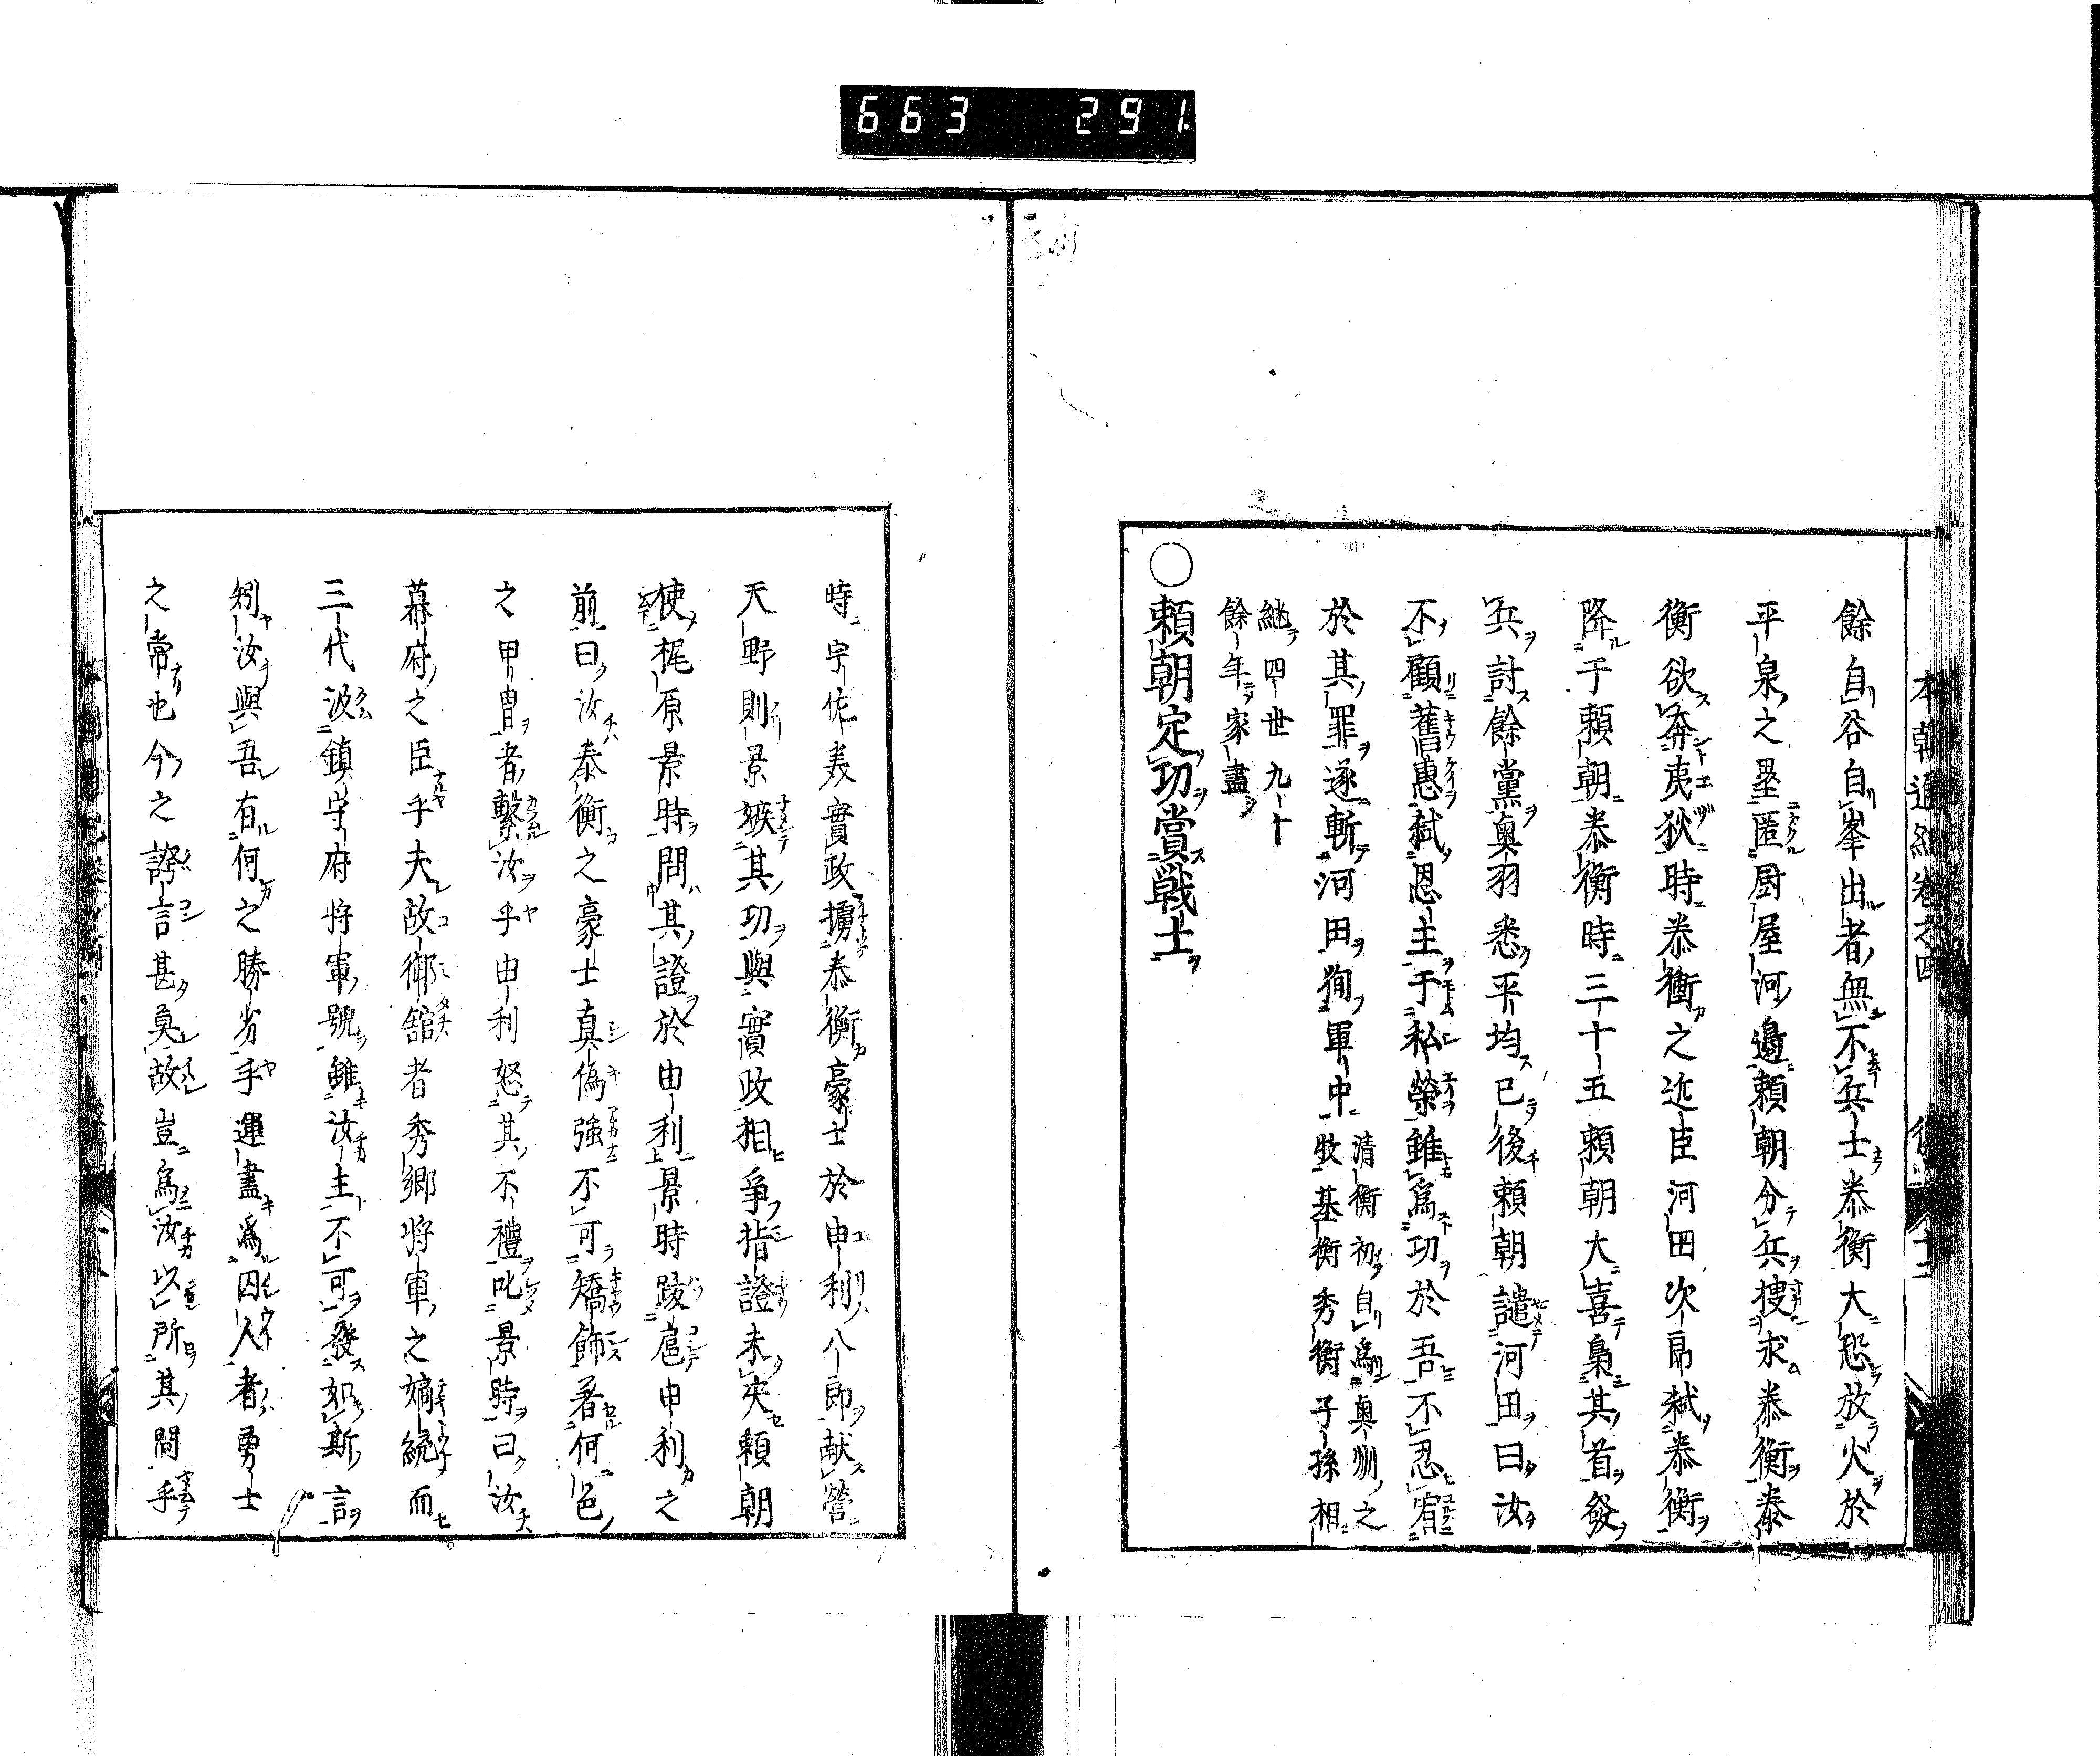 663 291
本朝通紀卷之四
餘自谷自峯出者無不兵士泰衡大恐放火於
平泉之壘匿厨屋河邉賴朝分兵捜求泰衡泰
衡欲奔夷狄時泰衡之近臣河田次郎弑泰衡
降于賴朝泰衡時三十五賴朝大喜梟其首發
兵討餘黨奥羽悉平均已後賴朝譴河田曰汝
不顧舊惠弑恩主于私榮雖爲功於吾不忍宥
於其罪遂斬河田狥軍中
清衡初自爲奥州之
牧基衡秀衡子孫相
継四世九十
餘年家盡
○賴朝定功賞戰士
時宇佐美實政擄泰衡豪士於由利八郎献營
天野則景嫉其功與實政相爭指證未决賴朝
使梶原景時問其證於由利景時踆扈由利之
前曰汝泰衡之豪士真偽強不可矯飾著何色
之甲冑者繫汝乎由利怒其不禮叱景時曰汝
幕府之臣乎夫故御舘者秀郷将軍之嫡統而
三代汲鎮守府将軍號雖汝主不可發如斯言
矧汝與吾有何之勝劣乎運盡爲囚人者勇士
之常也今之誇言甚奠故豈爲汝以所其問乎